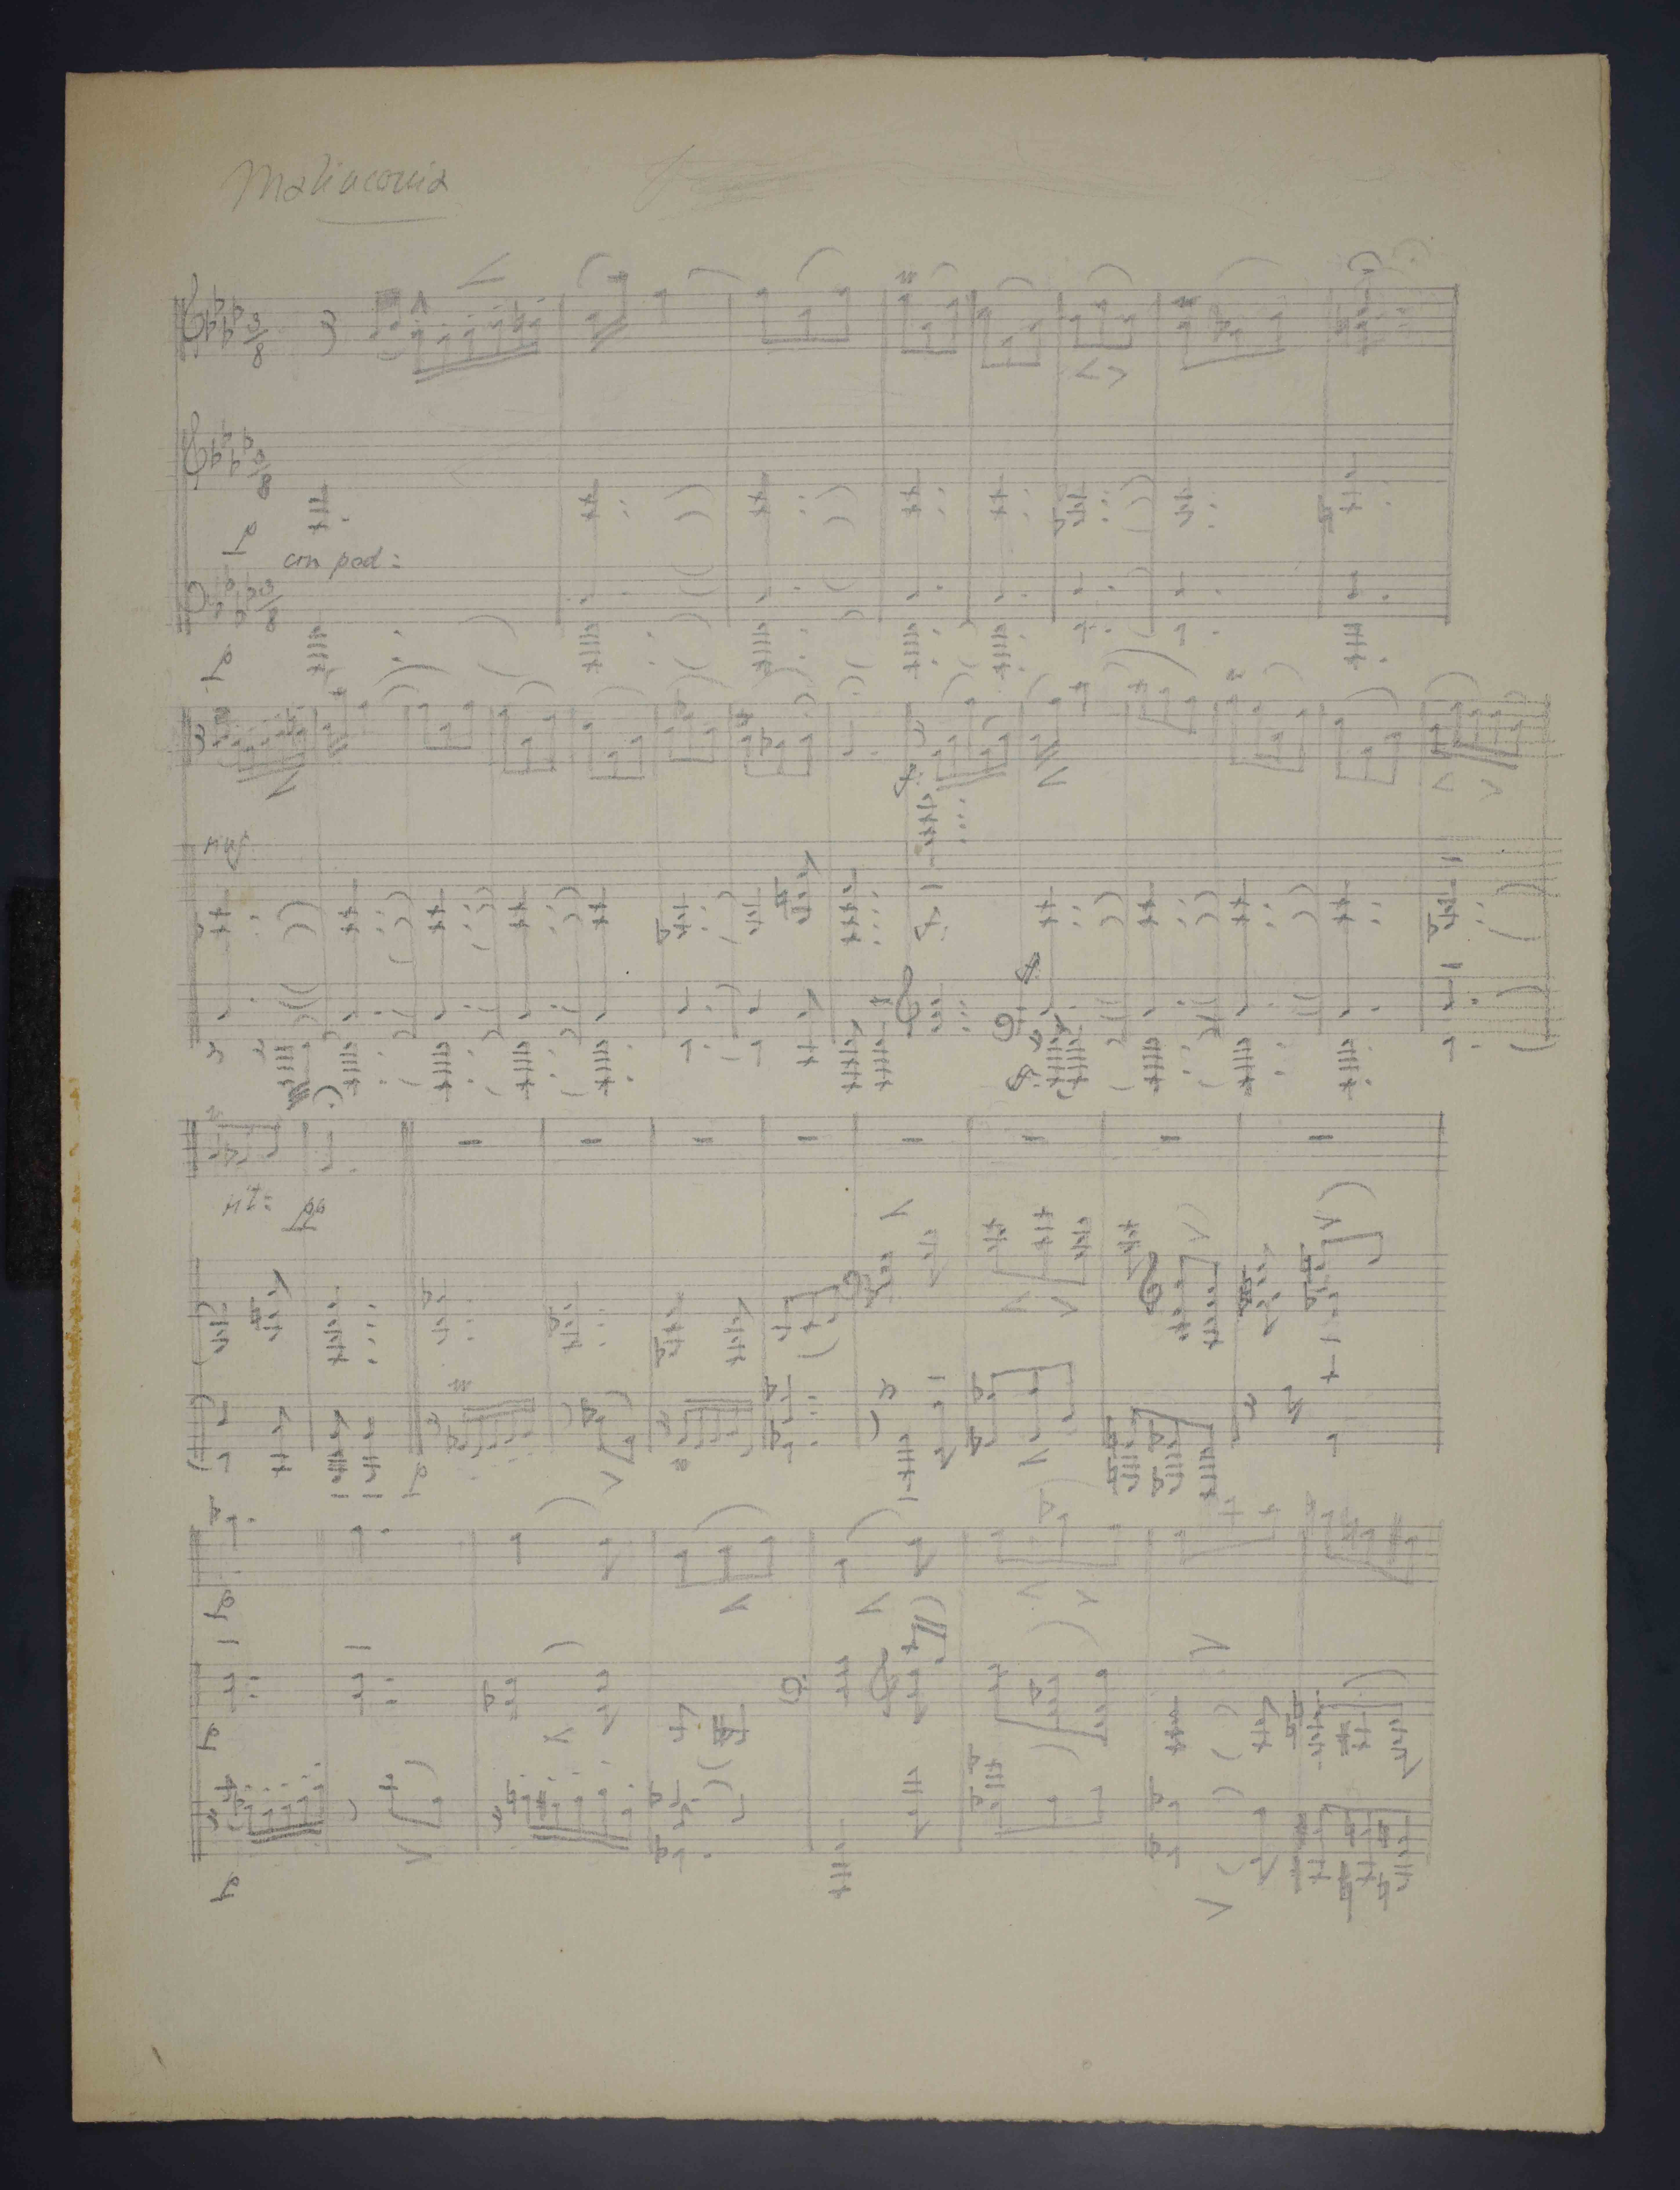 Malinconia
3/8
3/8
p
con ped:
3/8
p
rinf.
rit= pp
p
p
p
p